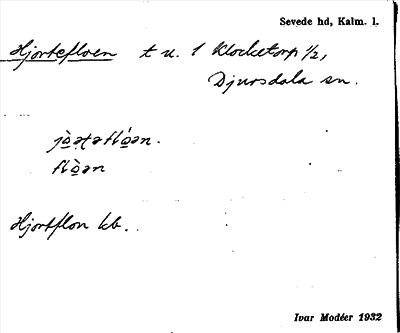 Sevede hd, Kalm. l.
Hjortefloen t u. 1 Klocketorp 1/2,
Djursdala sn.
jòatafló̱an.
flò̱ən
Hjortflon kb.
Ivar Modéer 1932